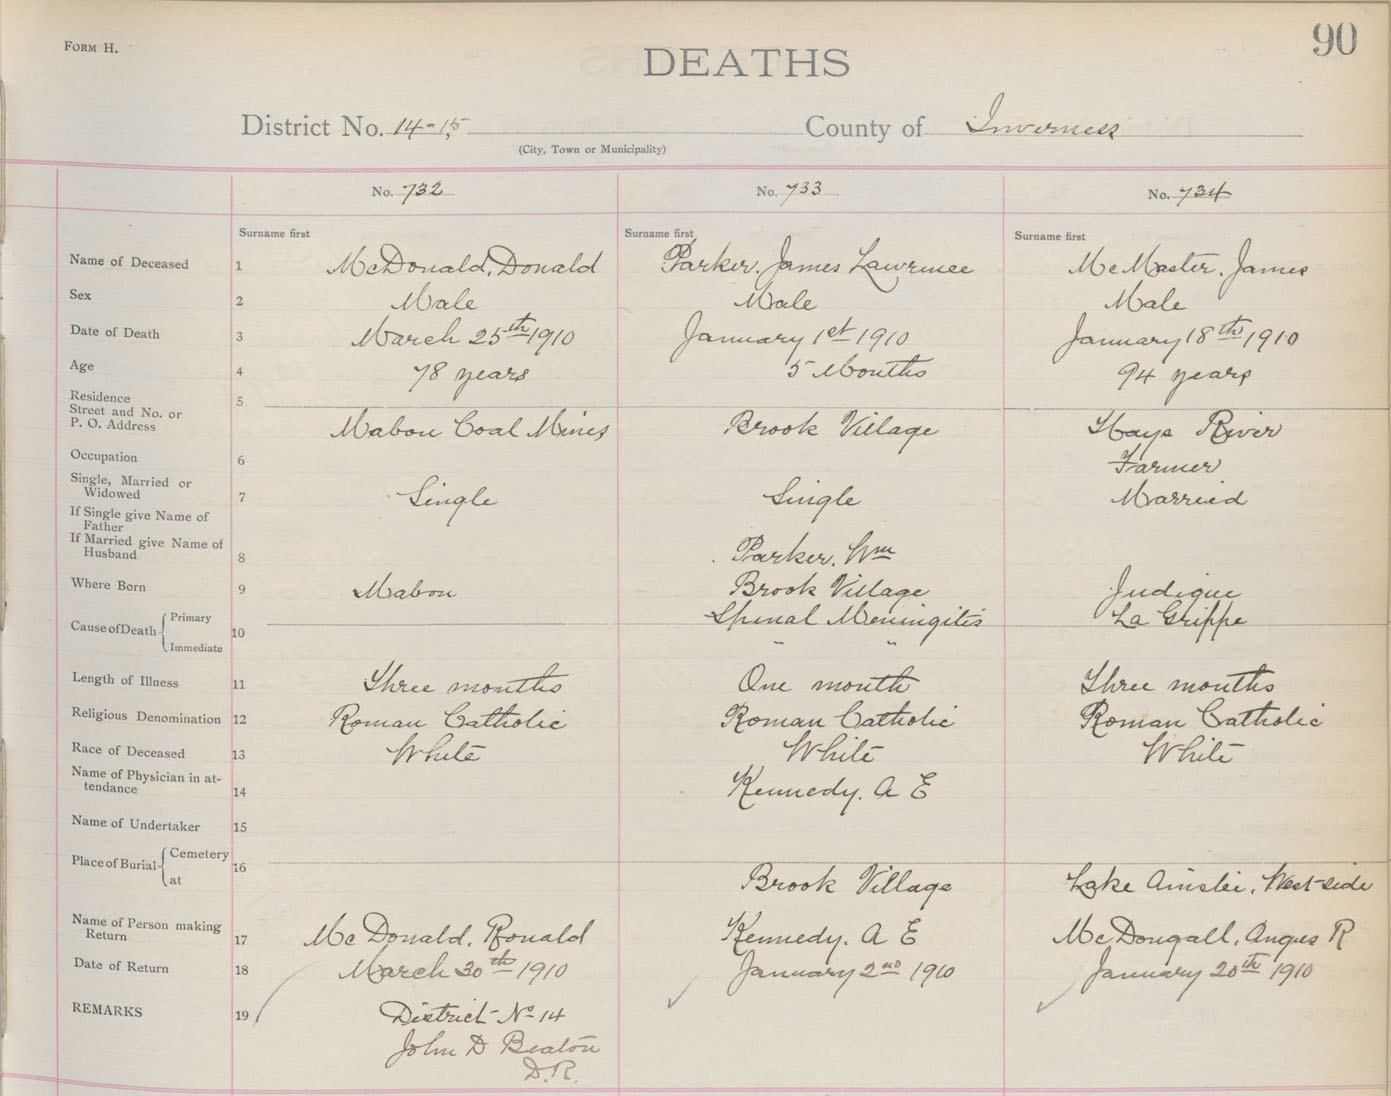 FORM H.
90
DEATHS
District No. 14-15 County of Inverness
(City, Town or Municipality)
No. 732 No. 733 No. 734
Surname first Surname first Surname first
Name of Deceased 1 McDonald, Donald Parker, James Lawrence McMaster, James
Sex 2 Male Male Male
Date of Death 3 March 25th 1910 January 1st 1910 January 18th 1910
Age 4 78 years 5 Months 94 years
Residence 5
Street and No. or
P. O. Address Mabou Coal Mines Brook Village Hays River
Occupation 6 Farmer
Single, Married or
Widowed 7 Single Single Married
If Single give Name of
Father
If Married give Name of
Husband 8 Parker, Wm
Where Born 9 Mabou Brook Village Judique
Cause of Death Primary 10 Spinal Meningitis La Grippe
Immediate " "
Length of Illness 11 Three months One month Three months
Religious Denomination 12 Roman Catholic Roman Catholic Roman Catholic
Race of Deceased 13 White White White
Name of Physician in at-
tendance 14 Kennedy. A E
Name of Undertaker 15
Place of Burial Cemetery 16
at Brook Village Lake Ainslie, West-side
Name of Person making
Return 17 McDonald, Ronald Kennedy. A E McDougall, Angus R
Date of Return 18 March 30th 1910 January 2nd 1910 January 20th 1910
REMARKS 19 District No 14
John D Beaton
D.R.